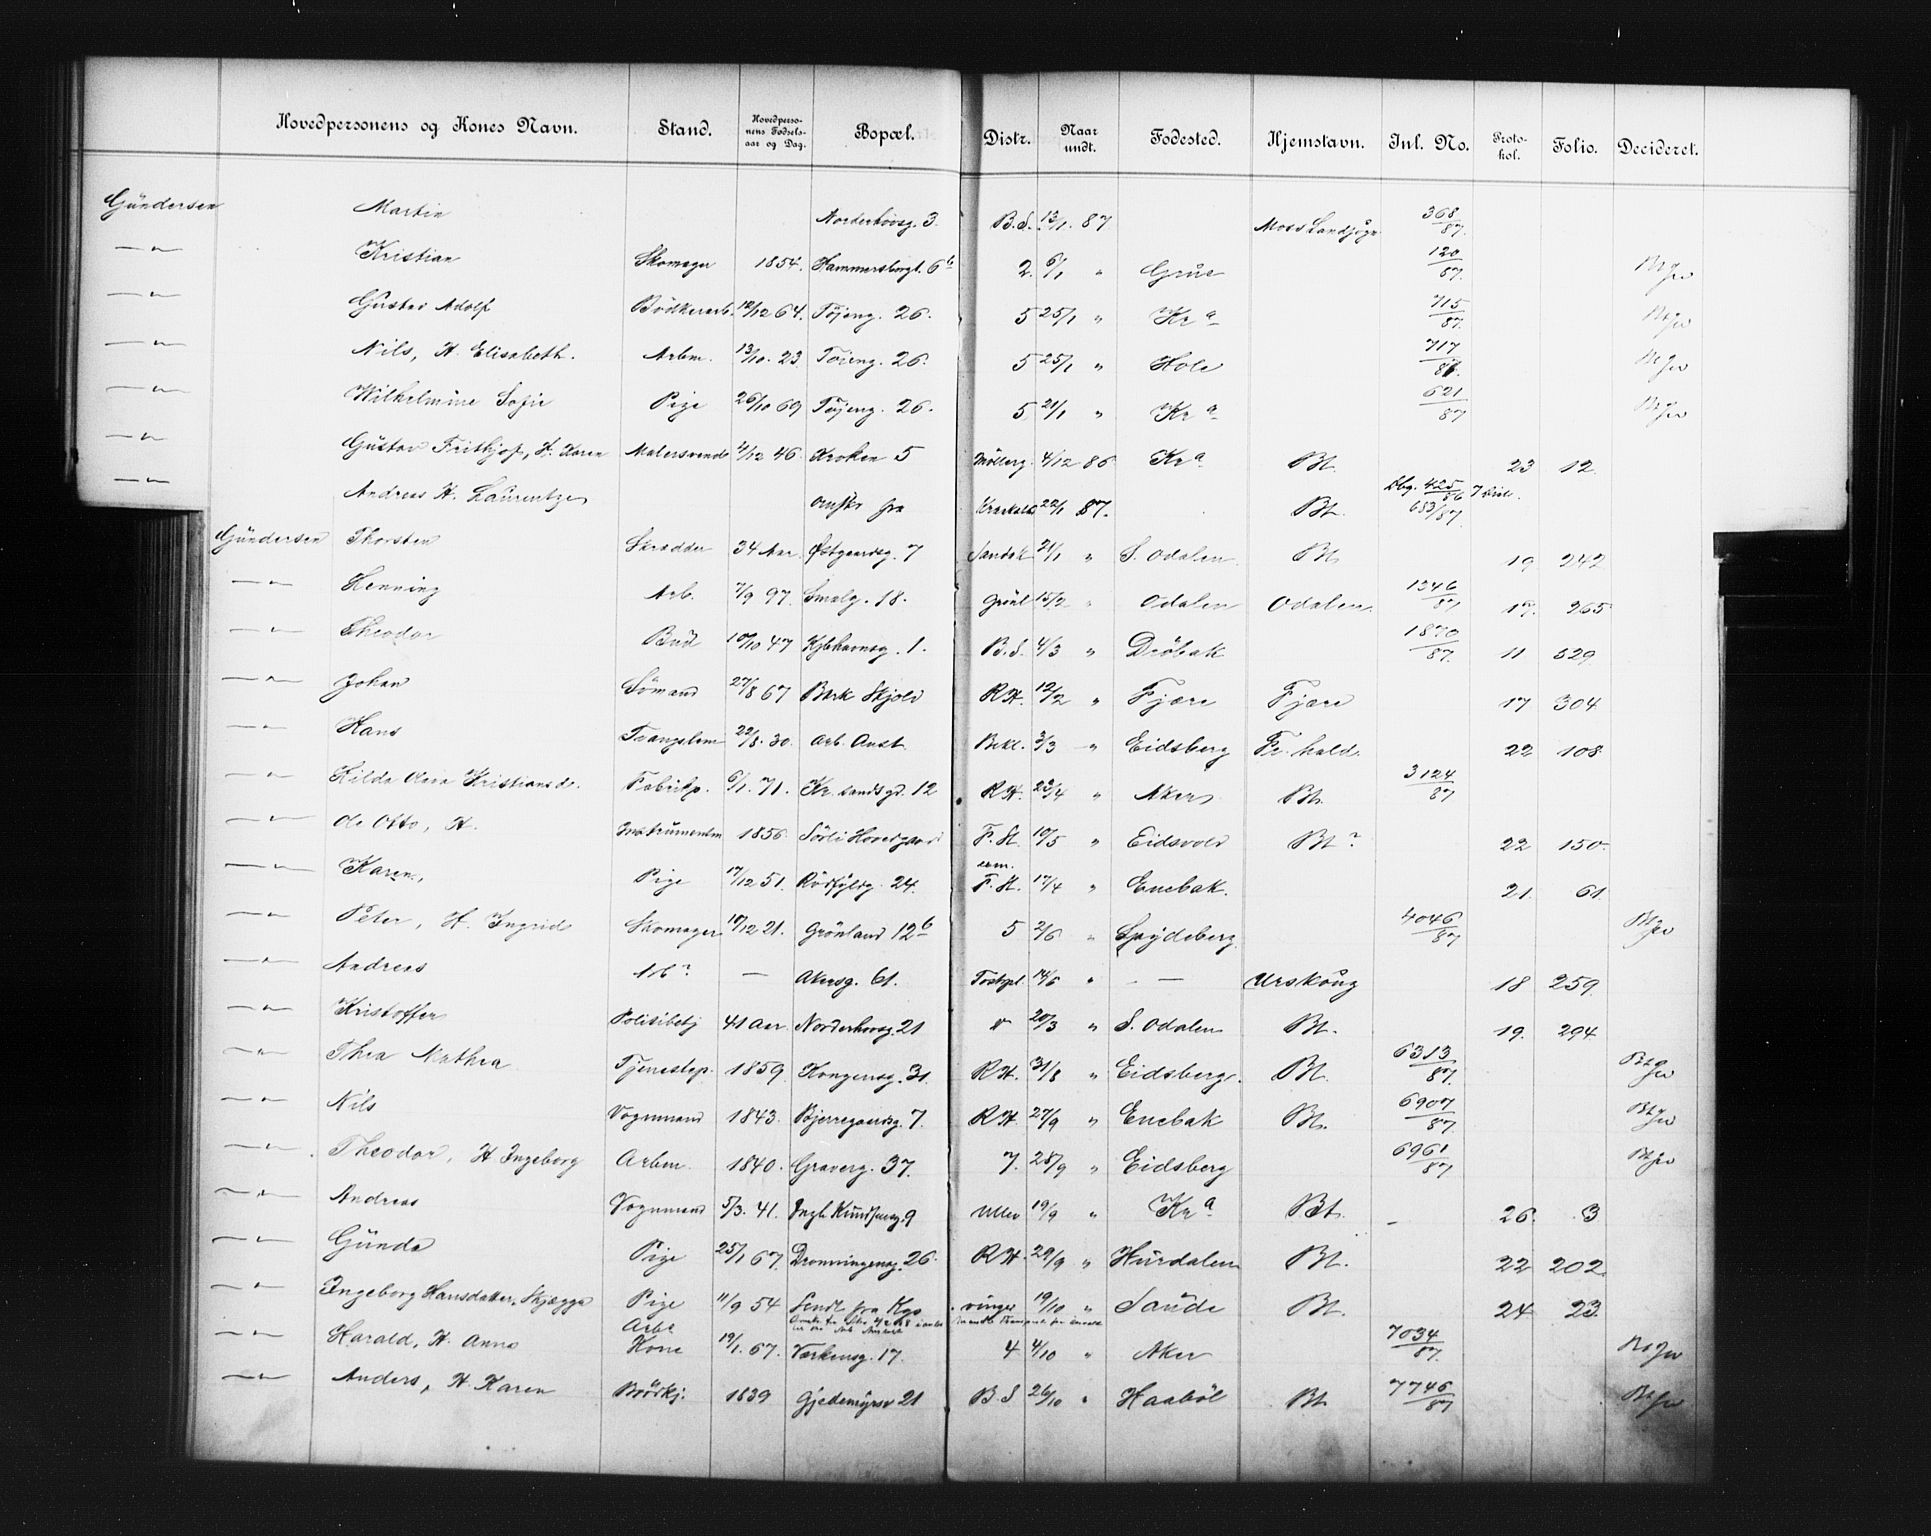 Hovedpersonens og Kones Navn. Stand. Hovedpersonens Fødselsaar og Dag. Bopæl. Distr. Naar undt. Fødested. Hjemstavn. Inl. No. Protokol. Folio. Decideret.
Gundersen Martin Norderhovsg. 3 B.S. 13/1 87 Moss Landsogn 368/87
—"— Kristian Skomager 1854 Hammersborgt. 6b 2. 6/1 " Grue 120/87
—"— Gustav Adolf Bødkerarb. 12/12 64. Tøjeng. 26. 5 25/1 " Kra 715/87
—"— Nils, H. Elisabeth. Arbm. 13/10 23 Tøieng. 26. 5 25/1 " Hole 717/86
—"— Wilhelmine Sofie Pige 26/10 69 Tøjeng. 26. 5 21/1 " Kra 621/87
—"— Gustav Frithjof, H. Karen Malersvend 4/12 46 Kroken 5 Møllerg. 4/12 86 Kra Bt. 23 12
—"— Andreas H. Laurentze fra 22/1 87. Bt. 425/86 683/87
Gundersen Thorsten Skrædder 34 Aar. Østgaardsg. 7 21/1 " S. Odalen Bt. 19 242
—"— Henning Arb. 7/9 97. Smalg. 18. Grønl 15/2 " Odalen Odalen 1346/87 17. 265
—"— Theodor Bud 10/10 47 Kjbhavnsg. 1. B.S. 4/3 " Drøbak 1870/87 11 529
—"— Johan Sømand 27/8 67 Bark Skjold R.H. 12/2 " Fjære Fjære 17 304
—"— Hans Tvangslem 22/8. 30. Arb. Anst. Bekl. 3/3 " Eidsberg Fr. hald. 22 108
—"— Hilda Kristiansd. Fabrikp. 6/1. 71. Kr. sandsgd. 12 R.H. 23/4 " Aker Bt. 3124/87
—"— Ole Otto, H. Instrumentm 1856. Sørli Hovedgaard F.H. 10/5 " Eidsvold Bt? 22 150.
—"— Karen, Pige 17/12 51. Rødfyldg. 24. F.H. 17/4 " Enebak. 21. 61.
—"— Peter, H. Ingrid Skomager 17/12 21. Grønland 12b 5 2/6 " Spydeberg 4046/87
—"— Andreas Akersg. 61. 14/6 " — Urskoug 18 259.
—"— Kristoffer Politibetj 41 Aar Norderhovsg. 21 20/3 " S. Odalen Bt. 19. 294
—"— Thea Mathea Tjenestep. 1859. Kongensg. 31. R.H. 31/8 " Eidsberg. Bt. 6313/87
—"— Nils Vognmand 1843. Bjerregaardsg. 7. R.H. 27/9 " Enebak Bt. 6907/87
—"— Theodor, H Ingeborg Arbm. 1840. Graverg. 37. 7. 28/9 " Eidsberg 6961/87
—"— Andreas Vognmand 5/3. 41. Knudsensg. 9 Ullev 19/9 " Kra Bt. 26. 3
—"— Gunda Pige 25/1 67. Dronningensg. 26. R.H. 29/9 " Hurdalen Bt. 22 202.
—"— Ingeborg Hansdatter, Skjægga Pige 11/9 54 Sendt fra Kgs vinger 19/10 " Sande Bt. 24 23
—"— Harald, H. Anna Arb. Kone 19/1. 67. Værkensg. 17. 4 4/10 " Aker 7034/87
—"— Anders, H. Karen Brødkj. 1839 Gjedemyrsv 21 B.S 26/10 " Haabøl Bt 7746/87